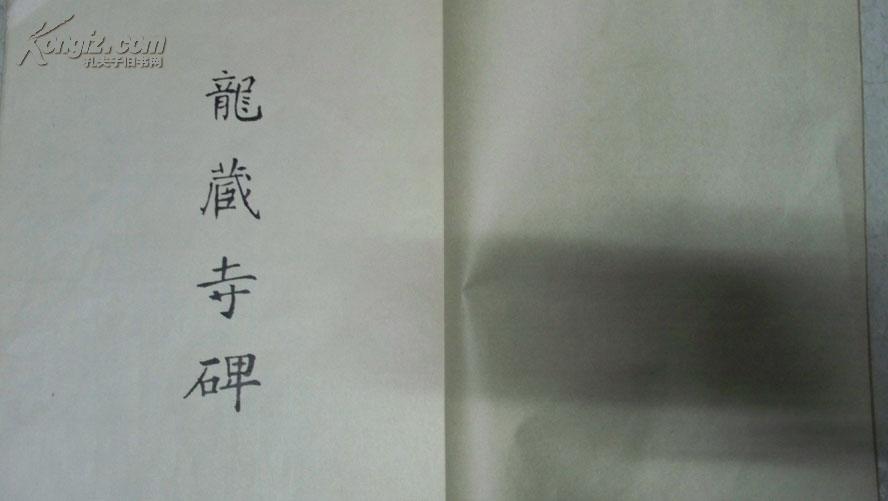 Kongfz.com
孔夫子旧书网
龍
藏
寺
碑